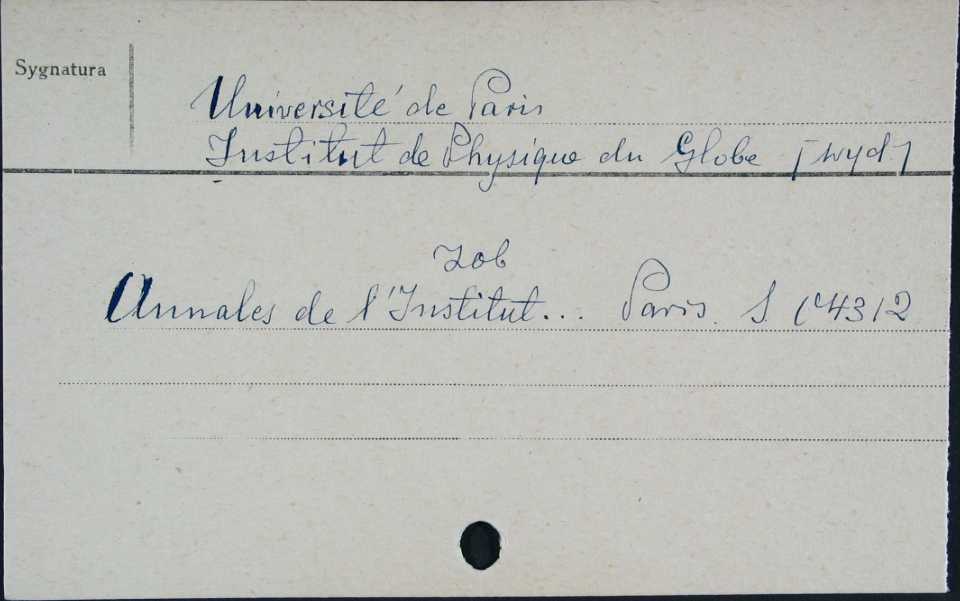 Sygnatura
Université de Paris
Institut de Physique du Globe [wyd]
zob
Annales de l'Institut... Paris. S C4312